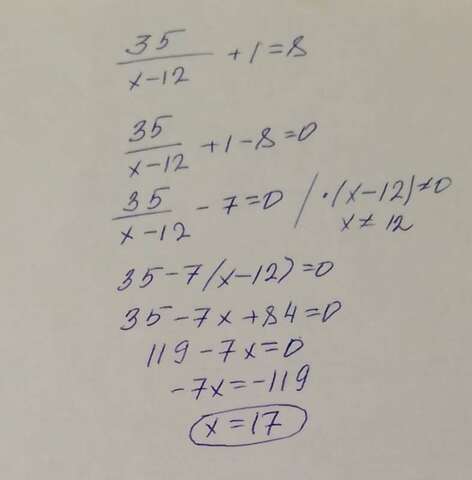 35/(x-12) + 1 = 8
35/(x-12) + 1 - 8 = 0
35/(x-12) - 7 = 0 / · (x-12) ≠ 0
x ≠ 12
35 - 7(x-12) = 0
35 - 7x + 84 = 0
119 - 7x = 0
-7x = -119
x = 17